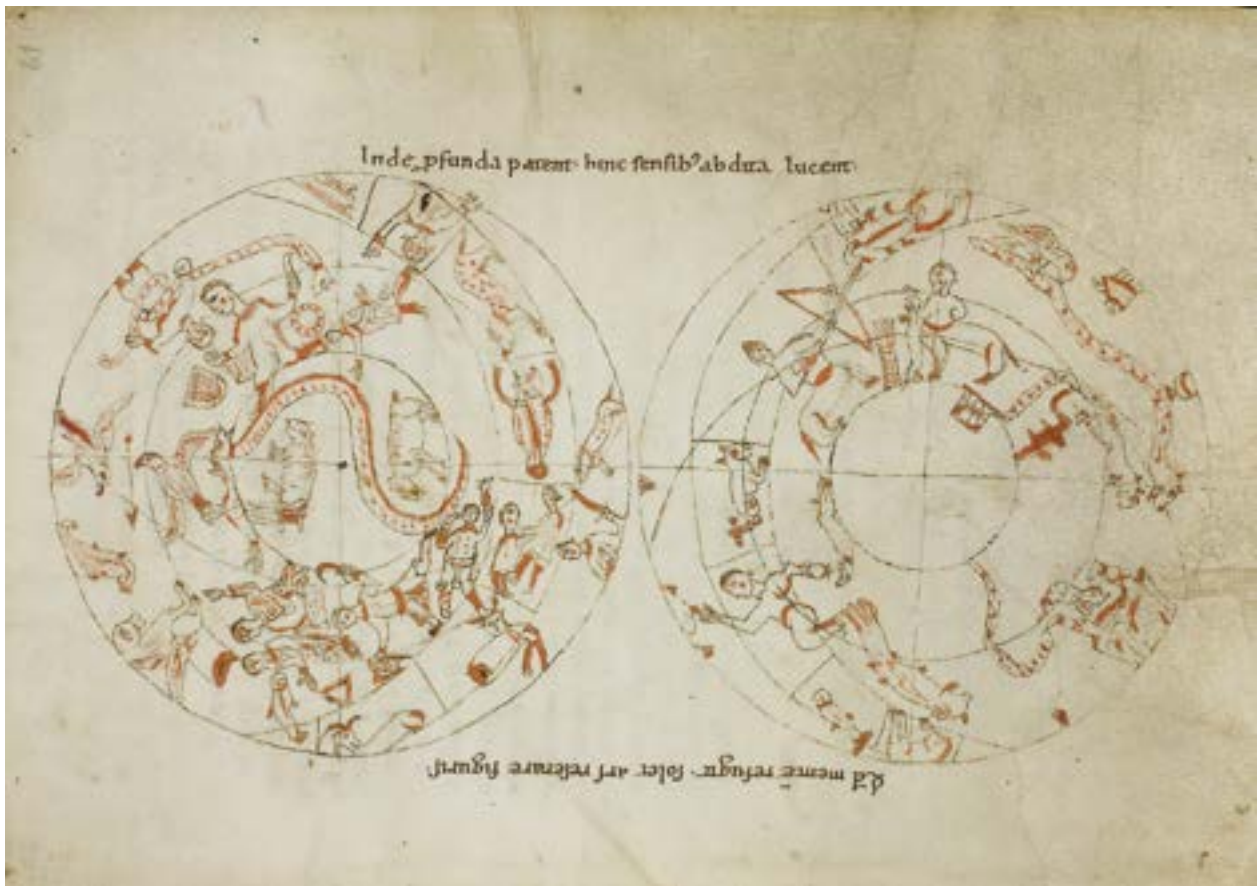 Inde ꝓfunda patent· hinc ſenſibꝰ abdita lucent·
Qđ mentē refugit· ſolet arſ reſerare figuriſ·